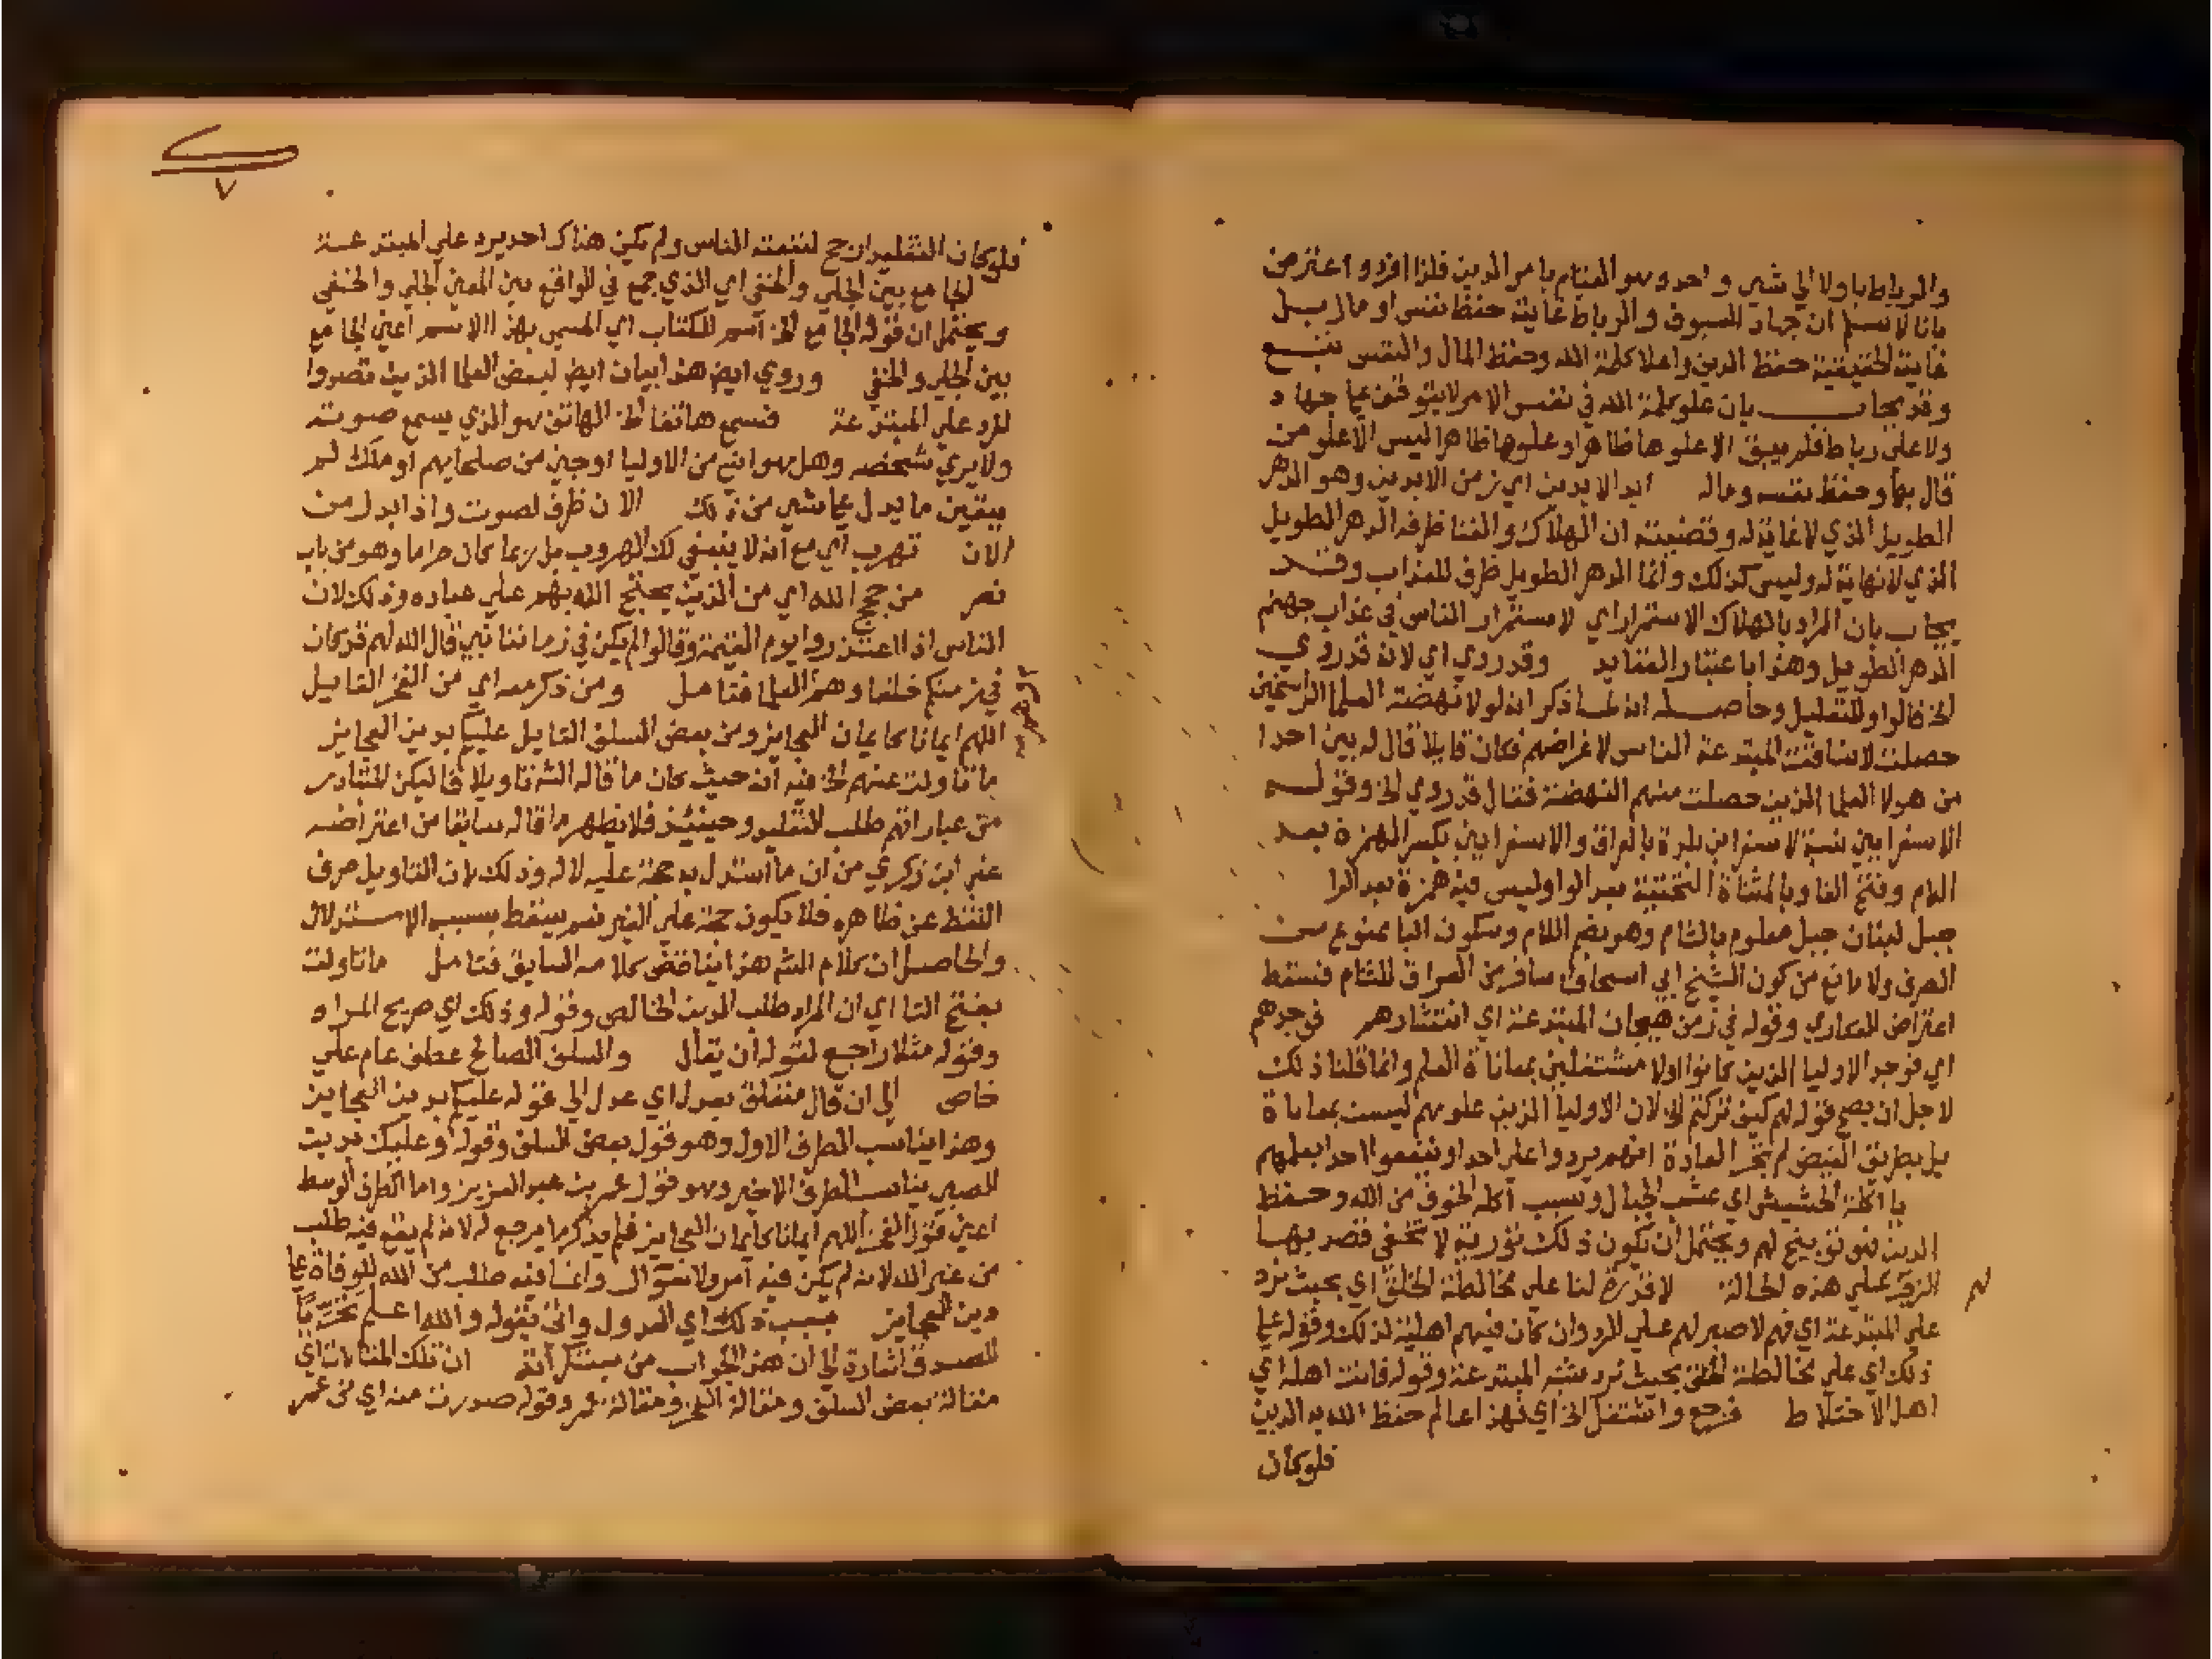 والرباط باولا الي شي واحد وهو القيام بامر الدين فلذا افرد واعترض
بانا لا نسلم ان جهاد السيوف والرباط غايته حفظ نفس او مال بل
غايته الحقيقية حفظ الدين واعلا كلمة الله وحفظ المال والنفس تبع
وقد يجاب بان علو كلمة الله في نفس الامر لا يتوقف علي جهاد
ولا علي رباط فلم يبق الا علوها ظاهرا وعلوها ظاهرا ليس الا علو من
قال بها وحفظ نفسه وماله ابد الابدين اي زمن الابدين وهو الدهر
الطويل الذي لا غاية له وقضيته ان الهلاك والفنا ظرفه الدهر الطويل
الذي لا نهاية له وليس كذلك وانما الدهر الطويل ظرف للعذاب وقد
يجاب بان المراد بالهلاك الاستمرار اي لاستمرار الناس في عذاب جهنم
الدهر الطويل وهذا باعتبار العقايد وقد روي اي لانه قد روي
الخ فالواو للتعليل وحاصله انه لما ذكر انه لولا نهضة العلما الراسخين
حصلت لانساقت المبتدعة الناس لاغراضهم فكان قايلا قال له بين احدا
من هولا العلما الذين حصلت منهم النهضة فقال قد روي الخ وقوله
الاسفرايني نسبة لاسفراين بلدة بالعراق والاسفرايني بكسر الهمزة بعد
اللام وفتح الفا وبالمثناة التحتية بعد الرا وليس فيه همزة بعد الرا
جبل لبنان جبل معلوم بالشام وهو بضم اللام وسكون البا ممنوع من
الصرف ولا مانع من كون الشيخ ابي اسحاق سافر من العراق للشام فسقط
اعتراض السكاري وقوله في زمن هيجان المبتدعة اي انتشارهم فوجدهم
اي فوجد الاوليا الذين كانوا اولا مشتغلين بمعاناة العلم وانما قلنا ذلك
لاجل ان يصح قوله لهم كيف تركتم الخ لان الاوليا الذين علومهم ليست بمعاناة
بل بطريق الفيض لم تجر العادة انهم يردوا علي احد او ينفعوا احدا بعلمهم
يا اكلة الحشيش اي عشب الجبال وسبب اكله الخوف من الله وحفظ
الدين فهو توبيخ لهم ويحتمل ان يكون ذلك تورية لا تخفي قصد بها
الزجر علي هذه الحالة لا قدرة لنا علي مخالطة الخلق اي بحيث نرد
علي المبتدعة اي فهم لا صبر لهم علي الرد وان كان فيهم اهلية لذلك وقوله علي
ذلك اي علي مخالطة الخلق بحيث نرد شبه المبتدعة وقوله فانت اهله اي
اهل الاختلاط فرجع واشتغل الخ اي فهذا عالم حفظ الله به الدين
فلو كان
٧
فلو كان التقليد ارجح لتبعته الناس ولم يكن هناك احد يرد علي المبتدعة
الجامع بين الجلي والخفي اي الذي جمع في الواقع بين المعني الجلي والخفي
ويحتمل ان قوله الجامع الخ اسم للكتاب اي المسمي بهذا الاسم اعني الجامع
بين الجلي والخفي وروي ايض هذا بيان ايض لبعض العلما الذين تصدوا
للرد علي المبتدعة فسمع هاتفا الخ الهاتف هو الذي يسمع صوته
ولا يري شخصه وهل هو انسي من الاوليا او جني من صلحايهم او ملك لم
يتعين ما يدل علي شي من ذلك الان ظرف لصوت واذا بدل من
الان تهرب اي مع انه لا ينبغي لك الهروب بل ربما كان حراما وهو من باب
نصر من حجج الله اي من الذين يحتج الله بهم علي عباده وذلك لان
الناس اذا اعتذروا يوم القيمة وقالوا لم يكن في زماننا نبي قال الله لهم قد كان
في زمنكم خلفا وهم العلما فتامل ومن ذكر معه اي من الفخر القايل
اللهم ايمانا كايمان العجايز ومن بعض السلف القايل عليكم بدين العجايز
ما تاولت عنهم الخ فيه ان حيث كان ما قاله الشه تاويلا فاليكن المتبادر
من عباراتهم طلب التقليد وحينئذ فلا يظهر ما قاله سابقا من اعتراضه
علي ابن زكري من ان ما استدل به حجة عليه لا له وذلك لان التاويل صرف
اللفظ عن ظاهره فلا يكون حجة علي الغير نعم يسقط بسبب الاستدلال
والحاصل ان كلام الشه هذا يناقض كلامه السابق فتامل ما تاولت
بفتح التا اي ان المراد طلب الدين الخالص وقوله وذلك اي صريح المراد
وقوله مثلا راجع لقوله ان يقال والسلف الصالح عطف عام علي
خاص الي ان قال متعلق بعدل اي عدل الي قوله عليكم بدين العجايز
وهذا يناسب الطرف الاول وهو قول بعض السلف وقوله او عليك بدين
الصبي يناسب الطرف الاخير وهو قول عمر بن عبد العزيز واما الطرف الوسط
اعني قول الفخر اللهم ايمانا كايمان العجايز فلم يذكر ما يرجع له لانه لم يقع فيه طلب
من غير الله لانه لم يكن فيه امر ولا سوال وانما فيه طلب من الله للوفاة علي
دين العجايز فسبب ذلك اي العدول واتي بقوله والله اعلم تحريا
للصدق اشارة الي ان هذا الجواب من مبتكراته ان تلك المقالات اي
مقالة بعض السلف ومقالة الفخر ومقالة عمر وقوله صدرت منه اي من عمر